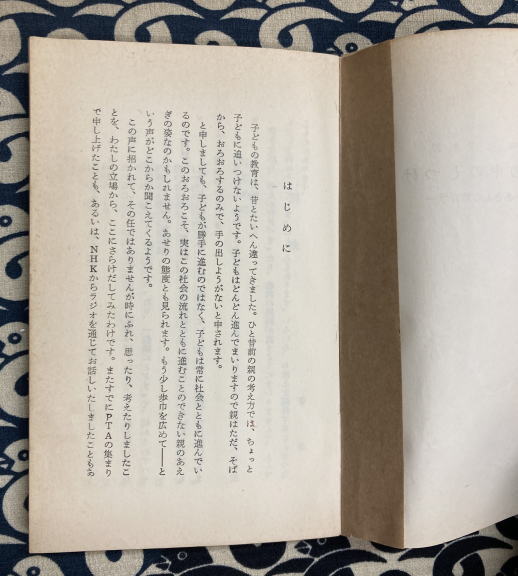 はじめに
子どもの教育は、昔とたいへん違ってきました。ひと昔前の親の考え方では、ちょっと
子どもに追いつけないようです。子どもはどんどん進んでまいりますので親はただ、そば
から、おろおろするのみで、手の出しようがないと申されます。
と申しましても、子どもが勝手に進むのではなく、子どもは常に社会とともに進んでい
るのです。このおろおろこそ、実はこの社会の流れとともに進むことのできない親のあえ
ぎの姿なのかもしれません。あせりの態度とも見られます。もう少し歩巾を広めて――と
いう声がどこからか聞こえてくるようです。
この声に招かれて、その任ではありませんが時にふれ、思ったり、考えたりしましたこ
とを、わたしの立場から、ここにさらけだしてみたわけです。またすでにPTAの集まり
で申し上げたことも、あるいは、NHKからラジオを通じてお話しいたしましたこともあ